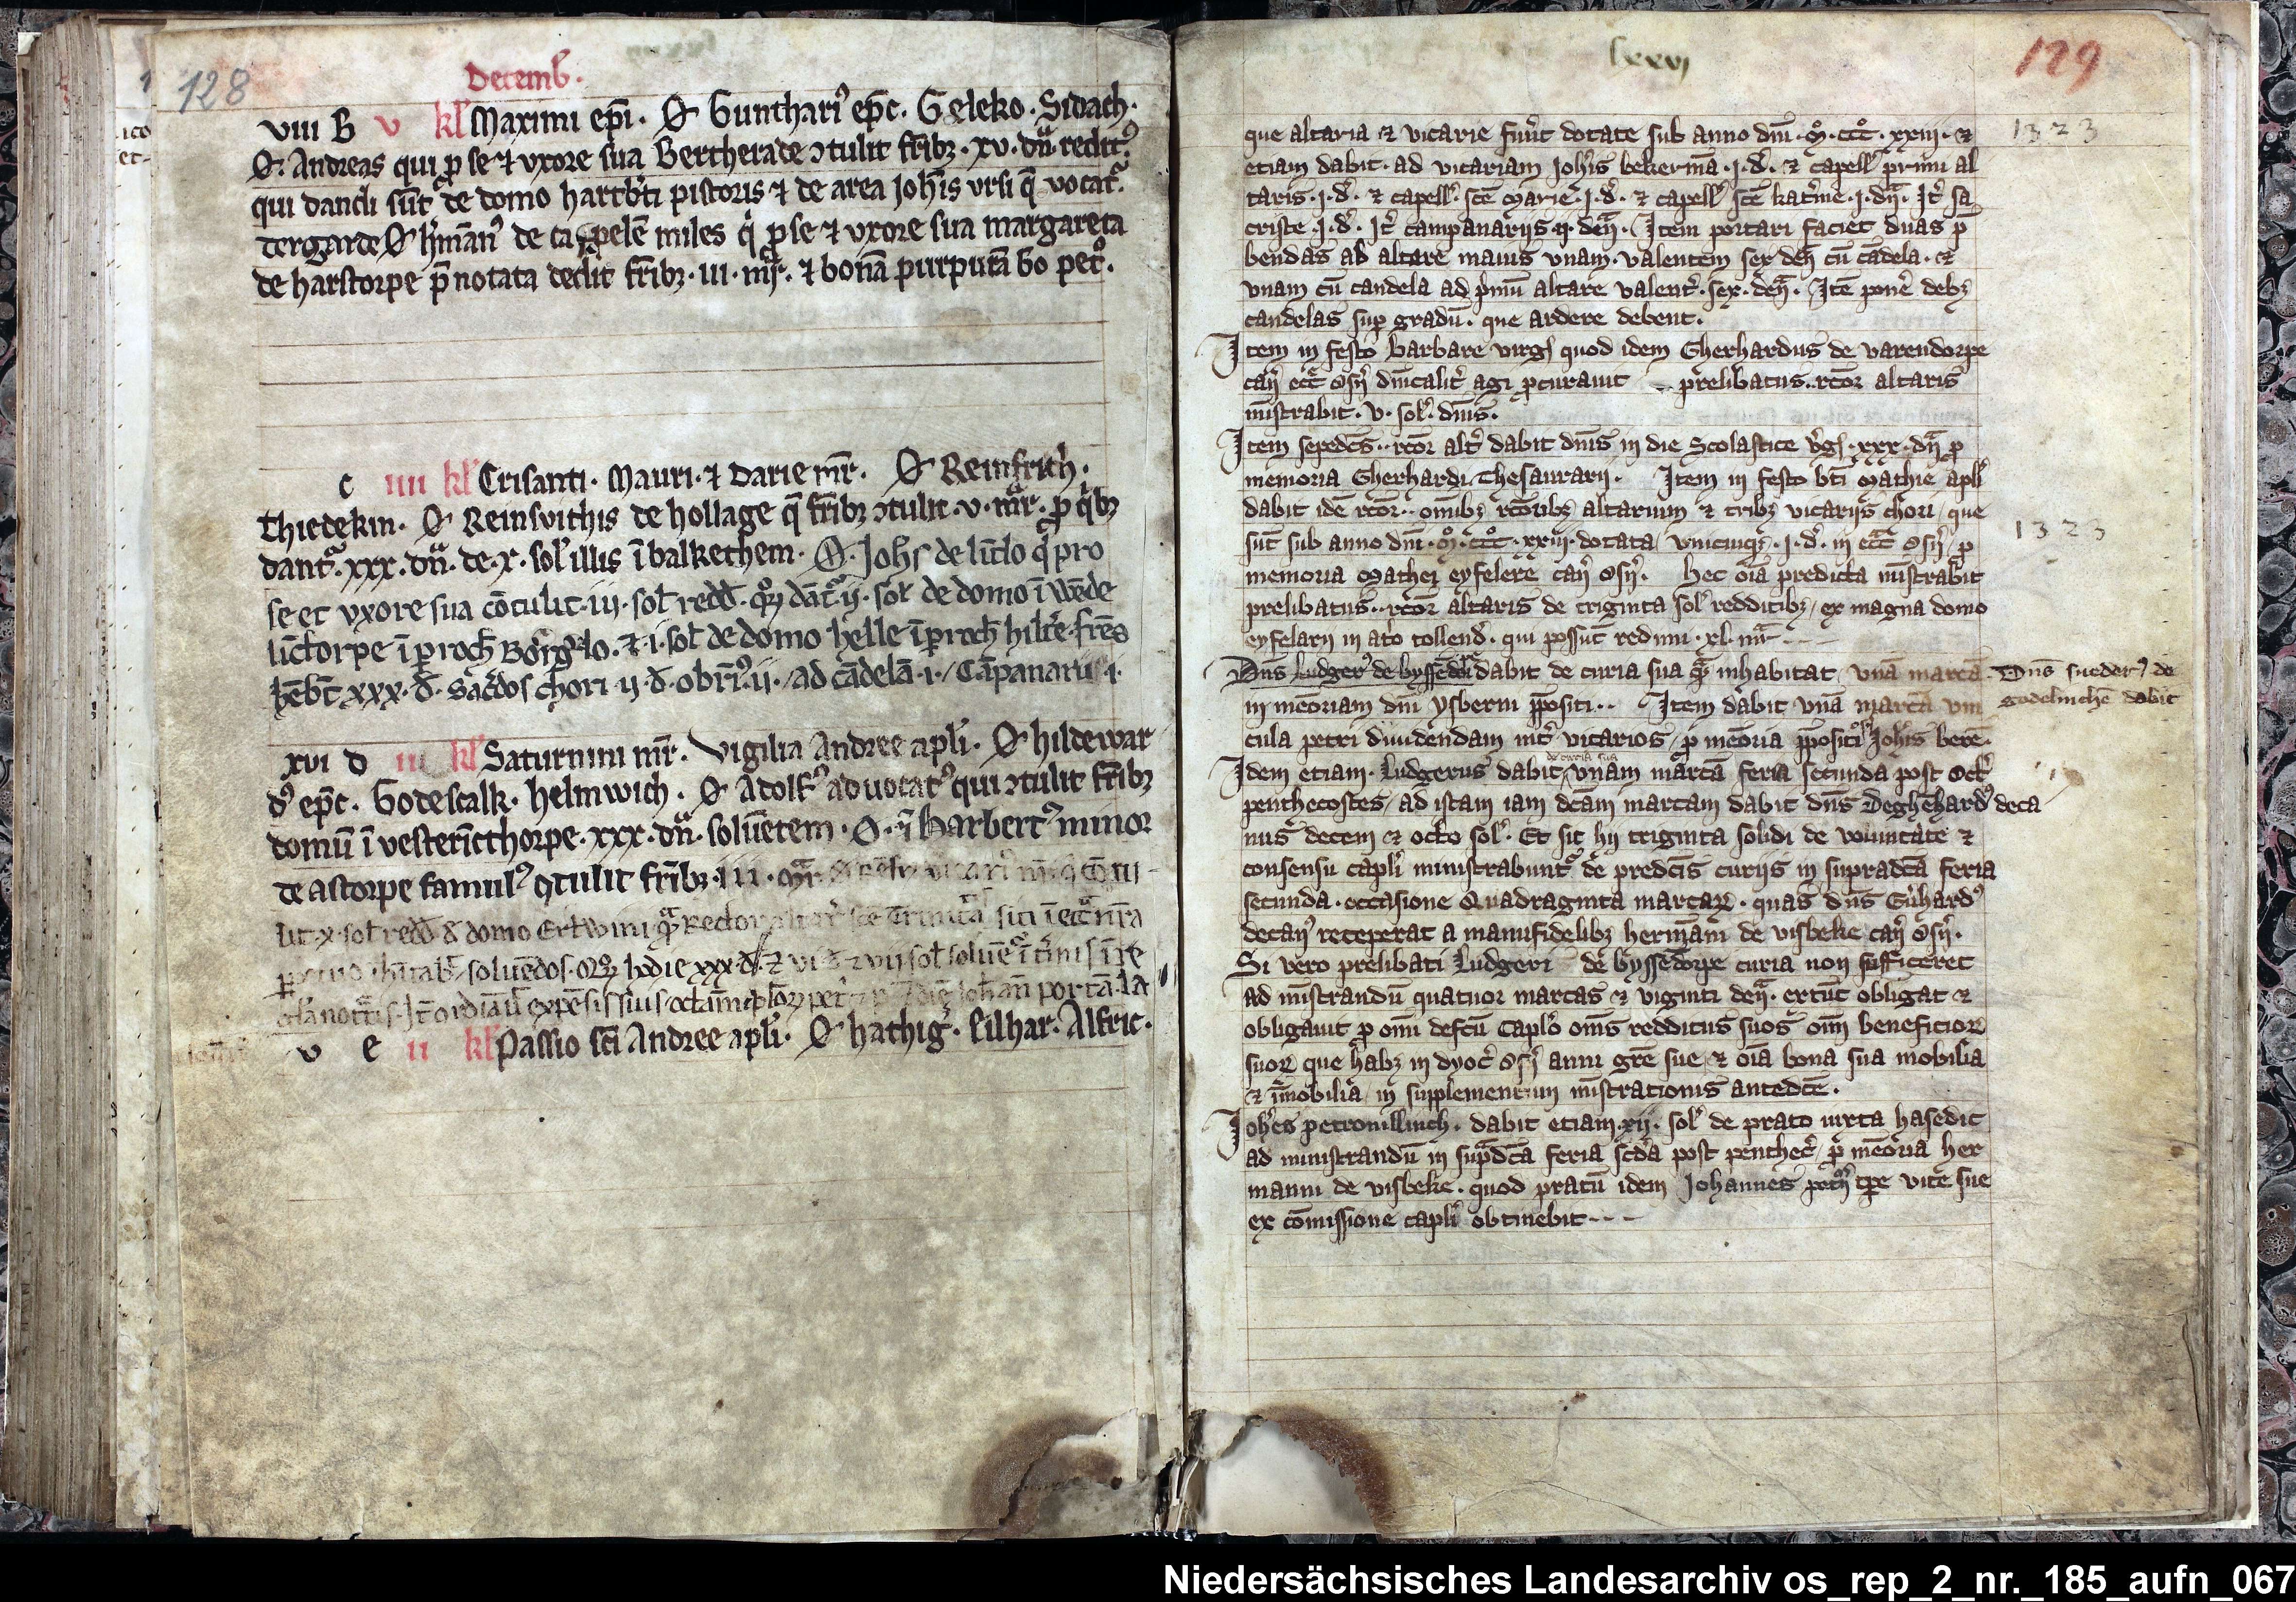 128
Decemb̃.
viii B v kl̃ Maximi ep̃i. O Guntharꝰ ep̃c. Geleko. Sidach.
O. Andreas qui ꝓ se ⁊ vxore sua Bertherade ↄtulit fr̃ibꝫ. xv. dñ. reditꝰ.
qui dandi sũt de domo hartb̃ti pistoris ⁊ de area Joh̃is vrsi q̃ vocat̃.
tergarde O h̃mãnꝰ de ca pelẽ miles q̇ ꝓ se ⁊ vxore sua margareta
de harstorpe p̃notata dedit fr̃ibꝫ. iii. mr̃. ⁊ bonã purpurã bo pet̃.
c iiii kl̃ Crisanti. Mauri. ⁊ Darie mr̃. O Reinfrith.
Thiedekin. O Reinsvithis de hollage q̃ fr̃ibꝫ ↄtulit. v. mr̃. ꝓ q̇bꝫ
dant̃. xxx. dñ. de. x. sol̃ illis ĩ balkethem. O. Joh̃s de lũlo q̇ pro
se et vxore sua cõtulit. iii. sol̃ redd̃. qͦꝝ dãt̃. ii. sol̃ de domo ĩ wẽde
lĩctorpe ĩ ꝑroch̃ Borg̃lo. ⁊. i. sol̃ de domo helle ĩ ꝑroch̃ hilt̃e. fr̃es
hẽbt̃ xxx. đ. Sac̃dos chori ii đ. ob̃rĩꝰ. ii. ad cãdelã. i. Cãpanariꝰ. i.
xvi D iii kl̃ Saturnini mr̃. Vigilia Andree apl̃i. O hildewar
dꝰ ep̃c. Godescalk. Helmwich. O Adolfꝰ aduocatꝰ qui ↄtulit fr̃ibꝫ
domũ ĩ vesterĩctthorpe. xxx. dñ. soluẽtem. O. Harbertꝰ minor
de astorpe famulꝰ ↄtulit fr̃ibꝫ. iii. mr̃.
lit. x. sol̃ redd̃ đ domo Ertwini Rector sc̃e Trinit̃ siti ĩ ecc̃ nr̃a
soluẽdos. hodie xxx. đ. ⁊ vi
v e ii kl̃ Passio sc̃i Andree apl̃i. O hathig̃. Eilhar. Alfric.
lxxvi
129
que altaria ⁊ vicarie fuñt dotate sub anno dñi. Mͦ. cccͦ. xxiii. ⁊
1323
etiam dabit. ad vicariam Joh̃is bekermã. i. đ. ⁊ capell̃ primi al
taris. i. đ. ⁊ capell̃ sc̃e Marie. i. đ. ⁊ capell̃ sc̃e kat̃ine. i. dñ. It̃ sa
criste. i. đ. It̃ campanariis. ii. deñ. Item portari faciet duas p̃
bendas ad altare maius vnam. valentem sex deñ cũ cãdela. ⁊
vnam cũ candela ad p̃mũ altare valent̃. sex. deñ. Itẽ ponẽ debꝫ
candelas suꝑ gradũ. que ardere debent.
Item in festo Barbare virg̃ quod idem Gherhardus de varendorpe
cañ ecc̃ Osñ dñicalit̃ agi ꝓcurauit prelibatus. rc̃or altaris
mĩstrabit. v. sol̃. dñis.
Item sepedc̃s. rc̃or alt̃ dabit dñis in die Scolastice v̇gĩs. xxx. dñ ꝓ
memoria Gherhardi Thesaurarii. Item in festo bt̃i Mathie apl̃i
dabit idẽ rc̃or. om̃ibꝫ rc̃oribꝫ altarium ⁊ tribꝫ vicariis chori, que
sũt sub anno dñi. Mͦ. cccͦ. xxiii. dotata, vnicuiqꝫ. i. đ. in ecc̃ Osñ ꝓ
1323
memoria Mathei eyfelere cañ Osñ. Hec oĩa predicta mĩstrabit
prelibatus. rc̃or altaris de triginta sol̃ redditibꝫ, ex magna domo
eyfelarii in at̃o tollend̃. qui possũt redimi. xl. mr̃
Dñs Ludgerꝰ de byssẽdorꝑ dabit de curia sua q̃ inhabitat, vnã marcã
Dñs suederꝰ de
godelinchẽ dabit
in mẽoriam dñi ysberni p̃positi.. Item dabit vnã marcã vin
cula petri diuidendam int̃ vicarios, ꝓ mẽoria p̃positi Joh̃is bere.
de curia sua
Idem etiam. Ludgerus dabit, vnam marcã feria secunda post Oct̃
penthecostes, ad istam iam dc̃am marcam dabit dñs Deghẽhardꝰ deca
nus decem ⁊ octo sol̃. Et sic hii triginta solidi de voluntate ⁊
consensu capl̃i ministrabunt̃ de predc̃is curiis in supradc̃a feria
secunda. occasione Quadraginta marcaꝝ. quas dñs Eũhardꝰ
decañ receperat a manufidelibꝫ hermãni de visbeke cañ Osñ.
Si vero prelibati Ludgeri de byssẽdorpe curia non sufficeret
ad mĩstrandũ quatuor marcas ⁊ viginti deñ. extũc obligat ⁊
obligauit ꝓ om̃i defc̃u Capl̃o om̃s redditus suos om̃ beneficioꝝ
suoꝝ que habꝫ in dyoc̃ Osñ anni gr̃e sue, ⁊ oĩa bona sua mobilia
⁊ ĩmobilia, in supplementum mĩstrationis antedc̃e.
Joh̃es petronillinch. dabit etiam. xii. sol̃ de prato iuxta hasedic
ad ministrandũ in sup̃dc̃a feria sc̃da post penthec̃, ꝓ mẽoria her
manni de visbeke. quod pratũ idem Johannes pet̃ tꝑe vite sue
ex cõmissione capl̃i obtinebit
Niedersächsisches Landesarchiv os_rep_2_nr._185_aufn_067